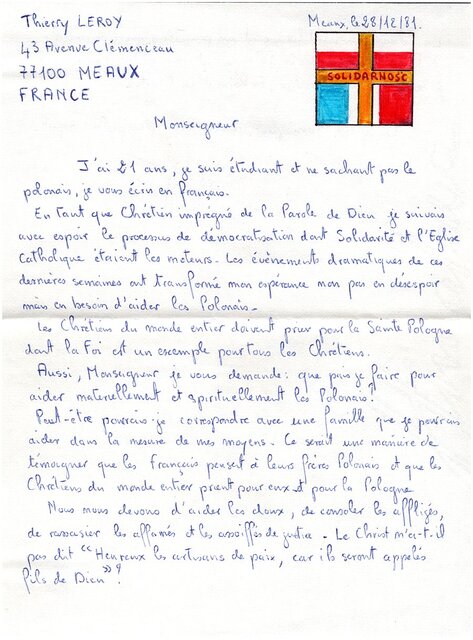 Thierry LEROY
Meaux, le 28/12/81.
43 Avenue Clémenceau
77100 MEAUX
FRANCE
SOLIDARNOŚĆ
Monseigneur
J'ai 21 ans, je suis étudiant et ne sachant pas le
polonais, je vous écris en français.
En tant que Chrétien imprégné de la Parole de Dieu je suivais
avec espoir le processus de démocratisation dont Solidarité et l'Eglise
Catholique étaient les moteurs. Les évènements dramatiques de ces
dernières semaines ont transformé mon espérance non pas en désespoir
mais en besoin d'aider les Polonais.
Les Chrétiens du monde entier doivent prier pour la Sainte Pologne
dont la Foi est un exemple pour tous les Chrétiens.
Aussi, Monseigneur je vous demande : que puis-je faire pour
aider matériellement et spirituellement les Polonais ?
Peut-être pourrais-je correspondre avec une famille que je pourrais
aider dans la mesure de mes moyens. Ce serait une manière de
témoigner que les Français pensent à leurs frères Polonais et que les
Chrétiens du monde entier prient pour eux et pour la Pologne
Nous nous devons d'aider les doux, de consoler les affligés,
de rassasier les affamés et les assoiffés de justice. Le Christ n'a-t-il
pas dit "Heureux les artisans de paix, car ils seront appelés
fils de Dieu" ?